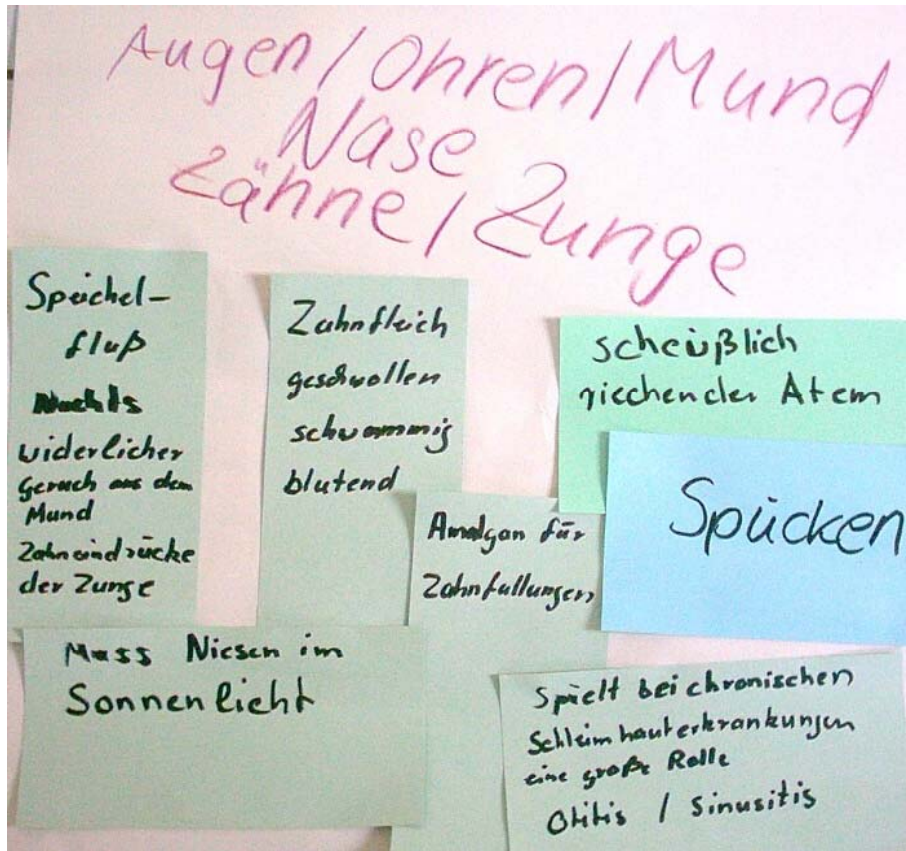 Augen / Ohren / Mund
Nase
Zähne / Zunge
Speichel-
fluß
Nachts
widerlicher
Geruch aus dem
Mund
Zahneindrücke
der Zunge
Zahnfleich
geschwollen
schwammig
blutend
scheüßlich
riechender Atem
Spücken
Amalgan für
Zahnfullungen
Muss Niesen im
Sonnenlicht
Spielt bei chronischen
Schleimhauterkrankungen
eine große Rolle
Otitis / Sinusitis